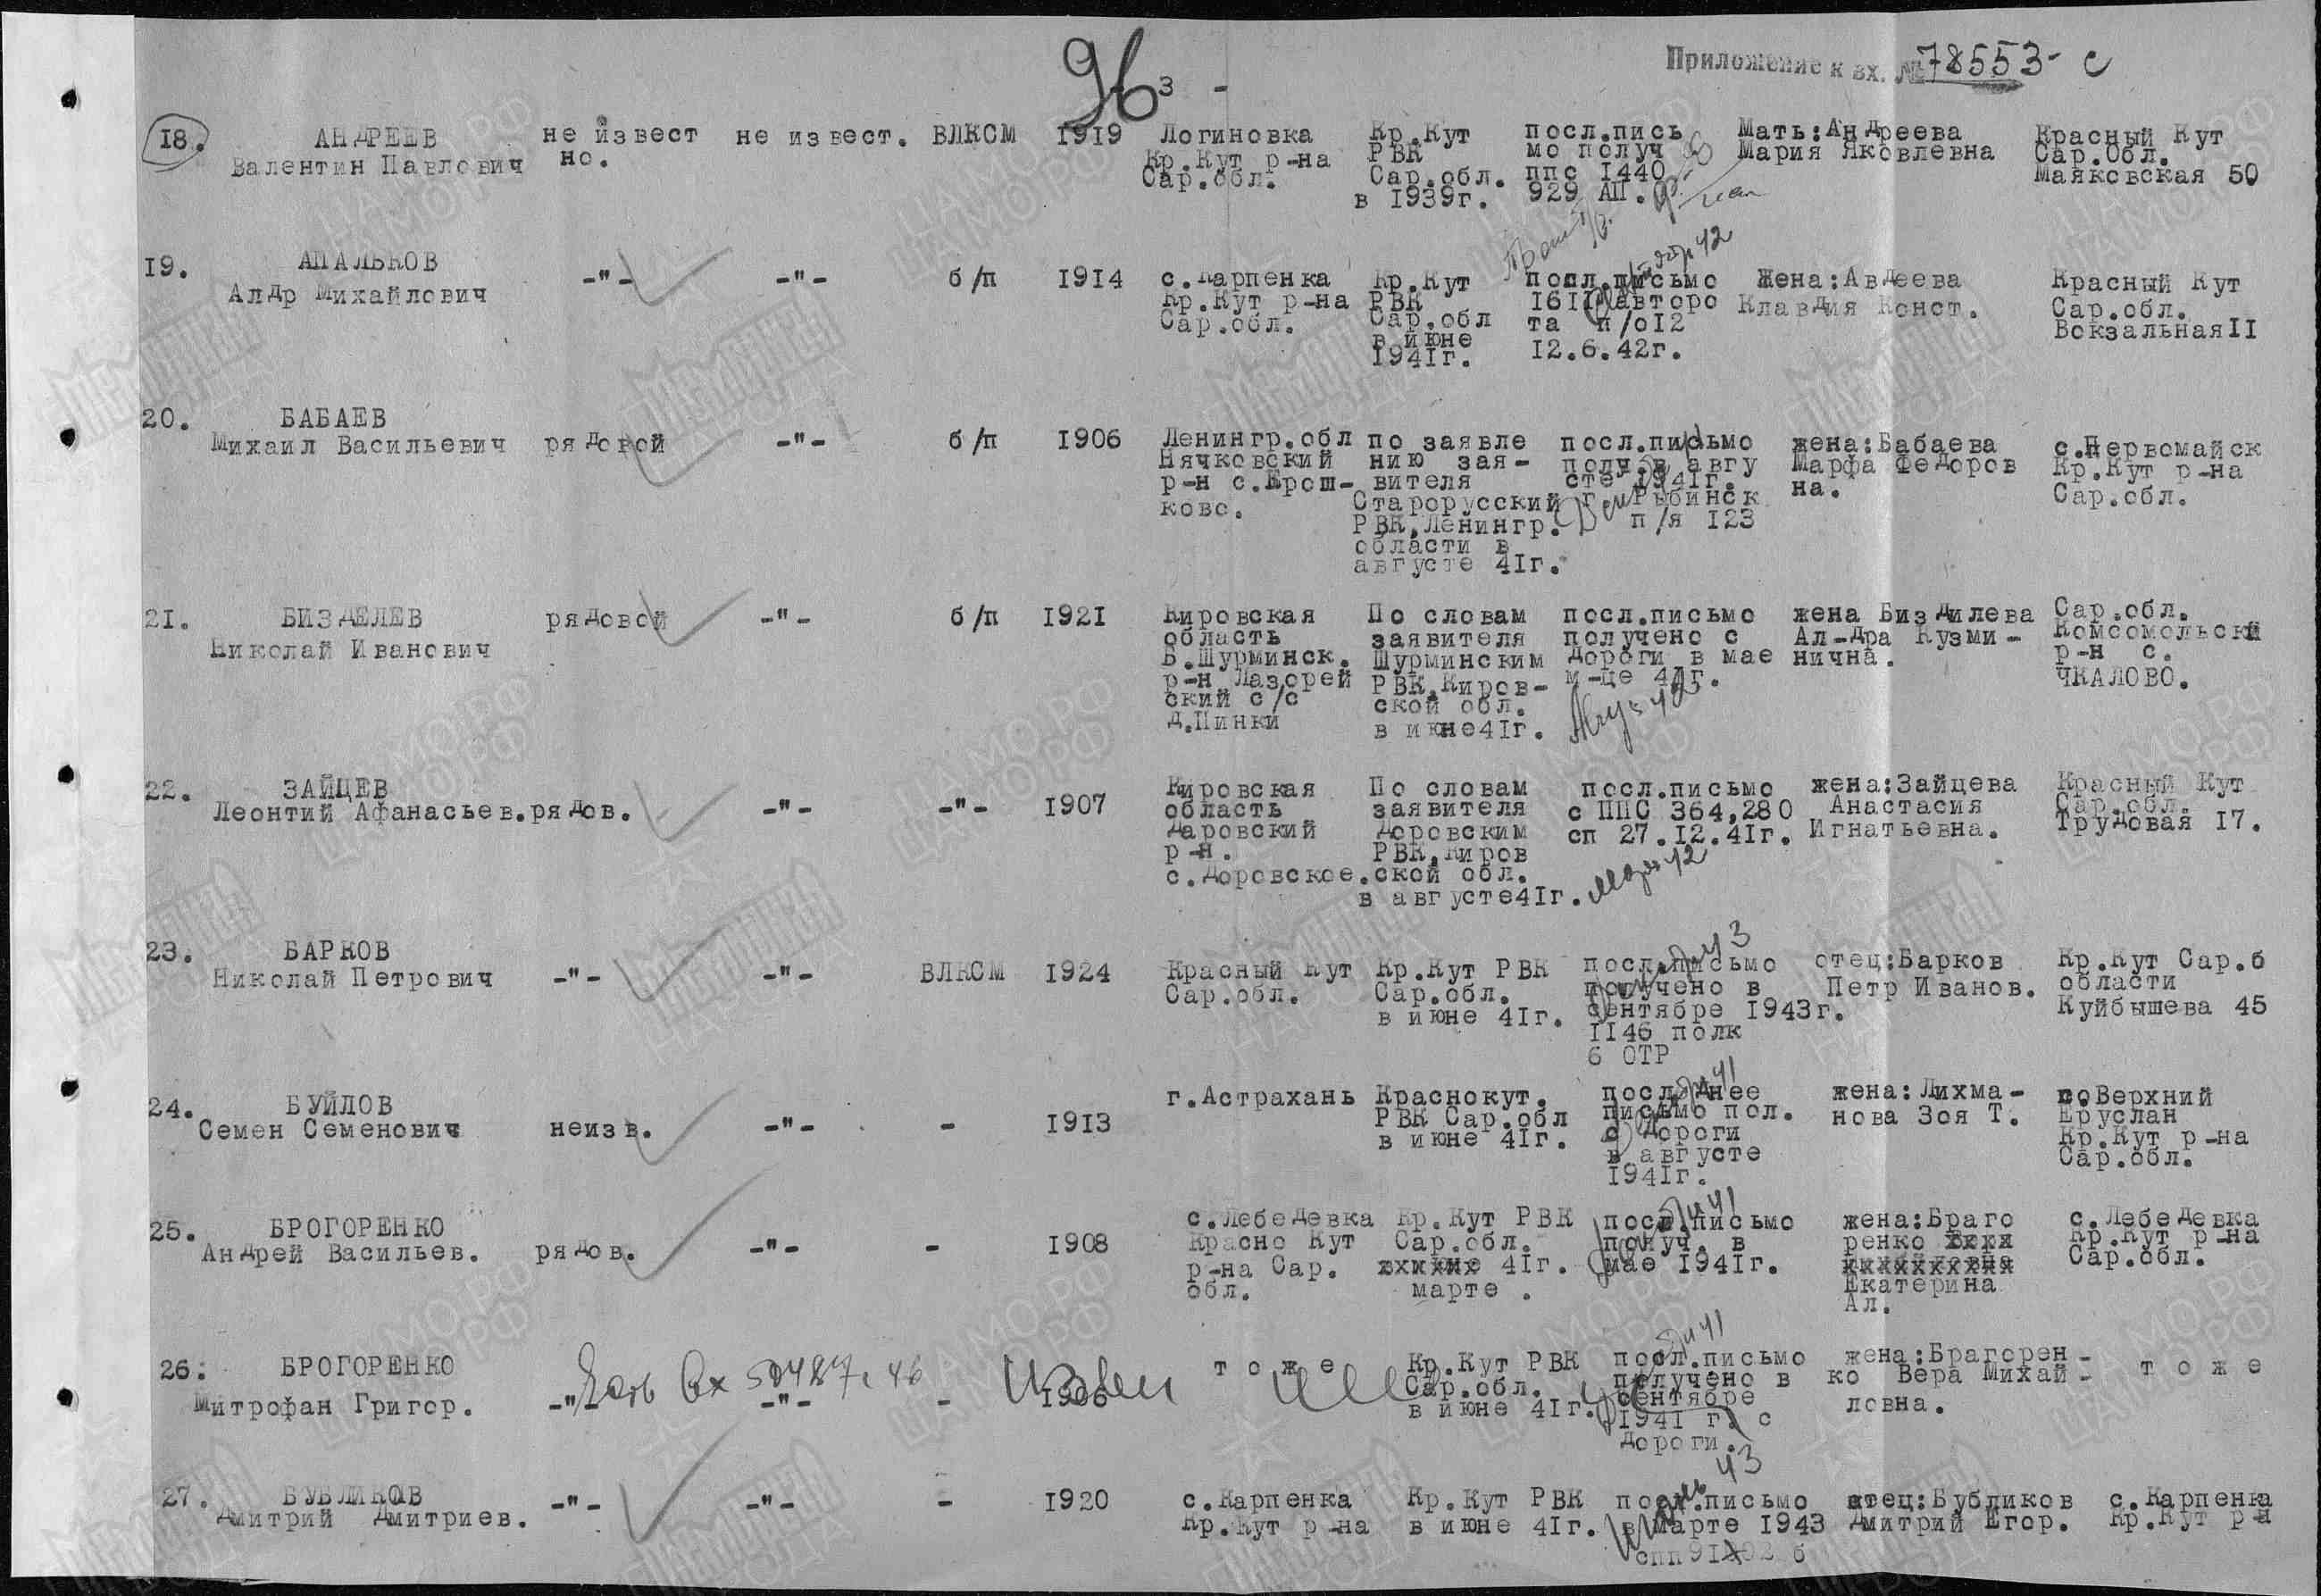 96
- 3 -
Приложение к вх. № 78553-с
18. АНДРЕЕВ не извест не извест. ВЛКСМ 1919 Логиновка Кр.Кут посл.пись Мать:Андреева Красный Кут
Валентин Павлович но. Кр.Кут р-на РВК мо получ Мария Яковлевна Сар.Обл.
Сар.обл. Сар.обл. ппс 1440 Маяковская 50
в 1939г. 929 АП.
19. АПАЛЬКОВ -"- -"- б/п 1914 с.Карпенка Кр.Кут посл.письмо Жена:Авдеева Красный Кут
Алдр Михайлович Кр.Кут р-на РВК 1611 авторо Клавдия Конст. Сар.обл.
Сар.обл. Сар.обл та п/о12 ВокзальнаяII
в июне 12.6.42г.
1941г.
20. БАБАЕВ
Михаил Васильевич рядовой -"- б/п 1906 Ленингр.обл по заявле посл.письмо жена:Бабаева с.Первомайск
Нячковский нию зая- получ.в авгу Марфа Федоров Кр.Кут р-на
р-н с.Ерош- вителя сте 1941г. на. Сар.обл.
ково. Старорусский г.Рыбинск
РВК,Ленингр. п/я 123
области в
августе 41г.
21. БИЗДЕЛЕВ рядовой -"- б/п 1921 Кировская По словам посл.письмо жена Биздилева Сар.обл.
Николай Иванович область заявителя получено с Ал-дра Кузми- Комсомольский
Б.Шурминск. Шурминским дороги в мае нична. р-н с.
р-н Лазорей РВК,Киров- м-це 41г. ЧКАЛОВО.
ский с/с ской обл.
д.Пинки в июне41г.
22. ЗАЙЦЕВ Кировская По словам посл.письмо жена:Зайцева Красный Кут
Леонтий Афанасьев.рядов. -"- -"- 1907 область заявителя с ППС 364,280 Анастасия Сар.обл.
Даровский Доровским сп 27.12.41г. Игнатьевна. Трудовая 17.
р-н. РВК,Киров
с.Доровское.ской обл.
в августе41г. март 42
23. БАРКОВ
Николай Петрович -"- -"- ВЛКСМ 1924 Красный Кут Кр.Кут РВК посл.письмо отец:Барков Кр.Кут Сар.б
Сар.обл. Сар.обл. получено в Петр Иванов. области
в июне 41г. сентябре 1943г. Куйбышева 45
1146 полк
6 ОТР
24. БУЙЛОВ г.Астрахань Краснокут. последнее жена:Лихма- с.Верхний
Семен Семенович неизв. -"- - 1913 РВК Сар.обл письмо пол. нова Зоя Т. Еруслан
в июне 41г. с дороги Кр.Кут р-на
в августе Сар.обл.
1941г.
25. БРОГОРЕНКО с.Лебедевка Кр.Кут РВК посл.письмо жена:Браго с.Лебедевка
Андрей Васильев. рядов. -"- - 1908 Красно Кут Сар.обл. получ. в ренко Кр.Кут р-на
р-на Сар. 41г. мае 1941г. Сар.обл.
обл. марте . Екатерина
Ал.
26. БРОГОРЕНКО тоже Кр.Кут РВК посл.письмо жена:Брагорен- тоже
Митрофан Григор. -"- -"- - 1906 Сар.обл. получено в ко Вера Михай-
в июне 41г. сентябре ловна.
1941 г. с
дороги.
27. БУБЛИКОВ -"- -"- - 1920 с.Карпенка Кр.Кут РВК посл.письмо отец:Бубликов с.Карпенка
Дмитрий Дмитриев. Кр.Кут р-на в июне 41г. в марте 1943 Дмитрий Егор. Кр.Кут р-н